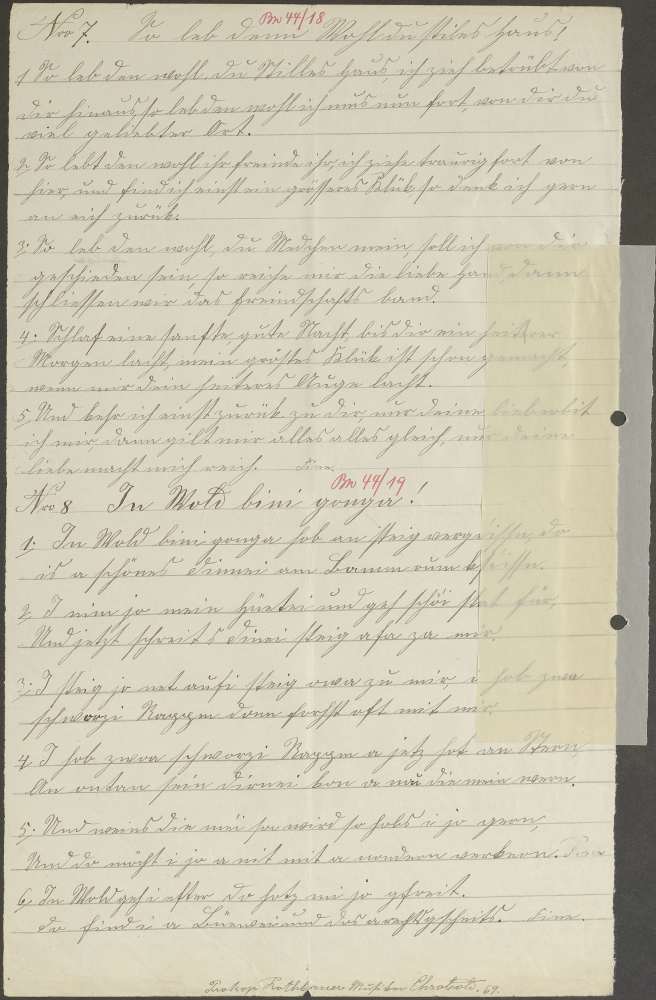 Bm 44/18
Nro 7. So leb denn Wohl du stiles Haus!
1 So leb den wohl, du Stilles Haus ich zieh betrübt von
dir hinaus so leb den wohl ich mus nun fort, von dir du
viel geliebter Ort.
2. So lebt den wohl ihr freinde ihr, ich ziehe traurig fort von
hier, und find ich einst ein grösseres Klük so denk ich gern
an eich zurük.
3. So leb den wohl, du Medchen mein, soll ich von dir
geschieden sein, so reiche mir die liebe Hand, dann
schliessen wir das freindschafts band.
4. Schlaf eine sanfte, gute Nacht, bis dir ein heitrer
Morgen lacht, mein grostes Klük ist schon gemacht,
wenn mir dein heiteres Auge lacht.
5. Und kehr ich einst zurük zu dir, nur deine lieb erbit
ich mir, dann gilt mir alles alles gleich, nur deine
liebe macht mich reich. Fine.
Bm 44/19
Nro 8 In Wold bini gonga!
1. In Wold bini gonga hob an steig vergissn, do
is a schönes Dirnei am Bamm oum
2. I nim jo mein Hüetei und geh schöi stat für,
Und jetzt schreit s Dirnei steig afa za mir.
3. I steig jo net aufi steig owa zu mir, i hob zwoa
schworzi Rappm donn forhst oft mit mir.
4. I hob zwoa schworzi Rappm a jetz hot an Stern,
An ontan sein Dirnei kon a nu die mein wern.
5. Und weins die mei so wird so hobs i jo gern,
Und do möcht i jo a nit mit a nondern verkern. Fine
6. In Wold geh i efter do hotz mi jo gfreit.
Do find i a und dos a rechtsgscheits. Fine.
Prokop Rothbauer Musiker Chrobold. 69.